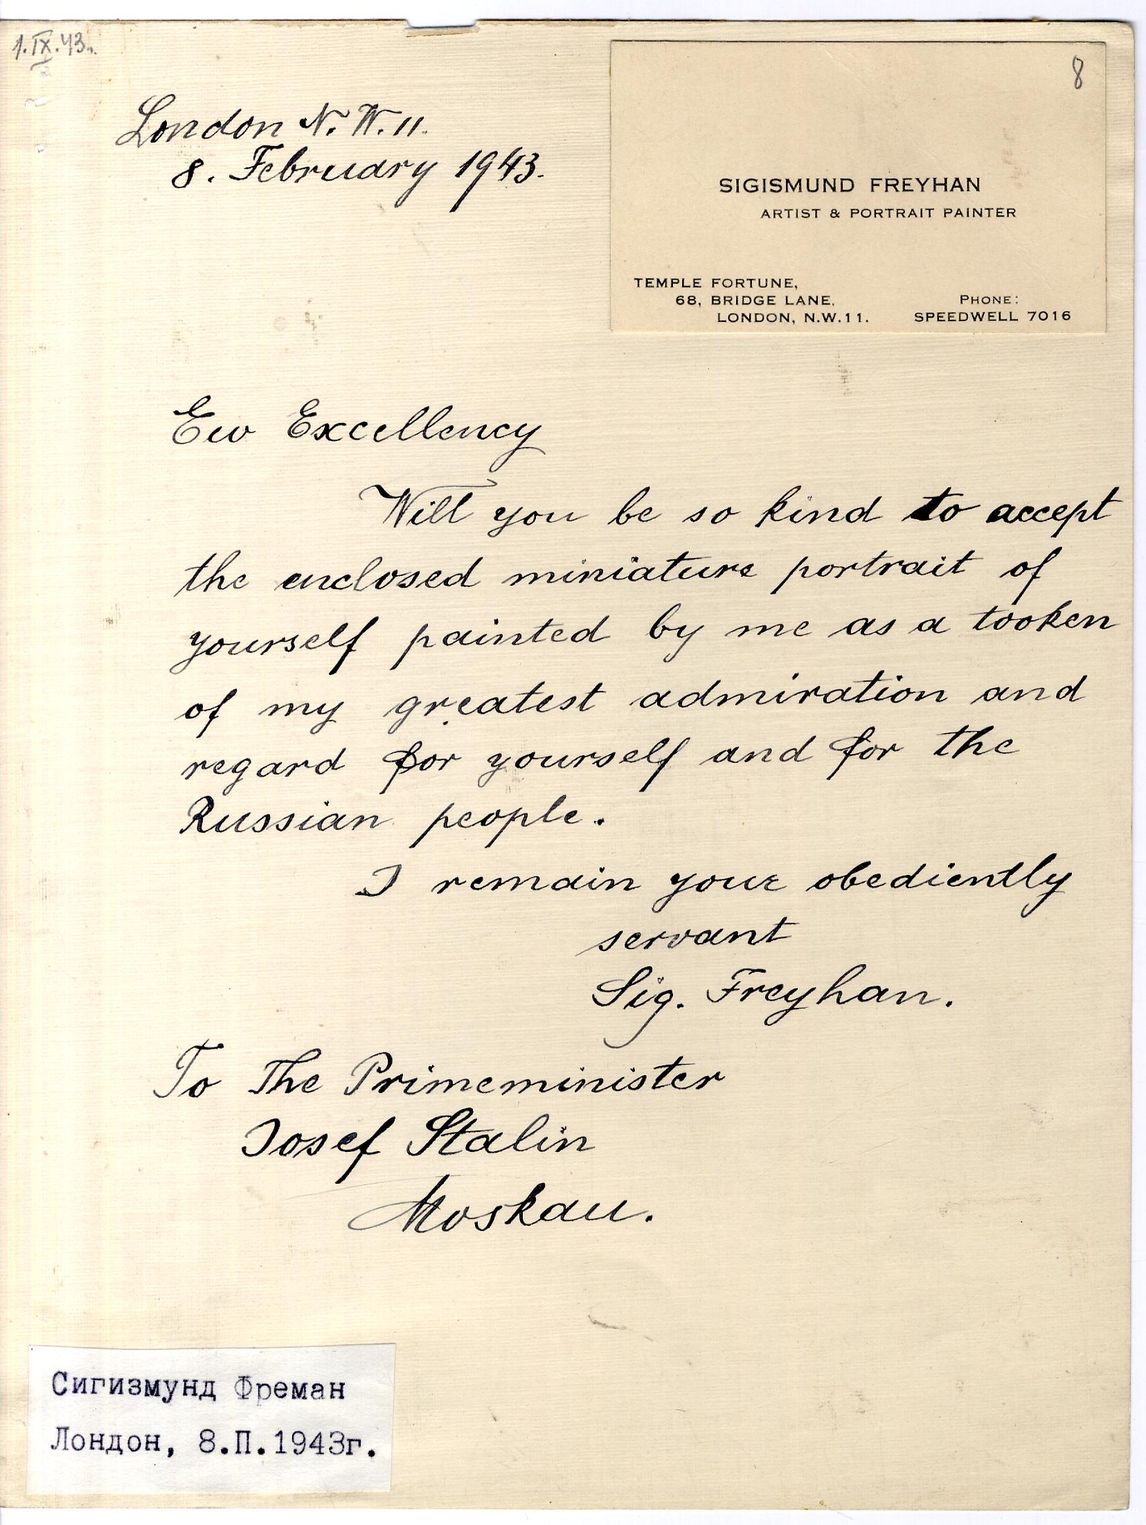 1.IX.43г.
8
London N.W.11.
8. February 1943.
SIGISMUND FREYHAN
ARTIST & PORTRAIT PAINTER
TEMPLE FORTUNE,
68, BRIDGE LANE,
LONDON, N.W.11.
PHONE:
SPEEDWELL 7016
Ew Excellency
Will you be so kind to accept
the enclosed miniature portrait of
yourself painted by me as a tooken
of my greatest admiration and
regard for yourself and for the
Russian people.
I remain your obediently
servant
Sig. Freyhan.
To The Primeminister
Josef Stalin
Moskau.
Сигизмунд Фреман
Лондон, 8.П.1943г.